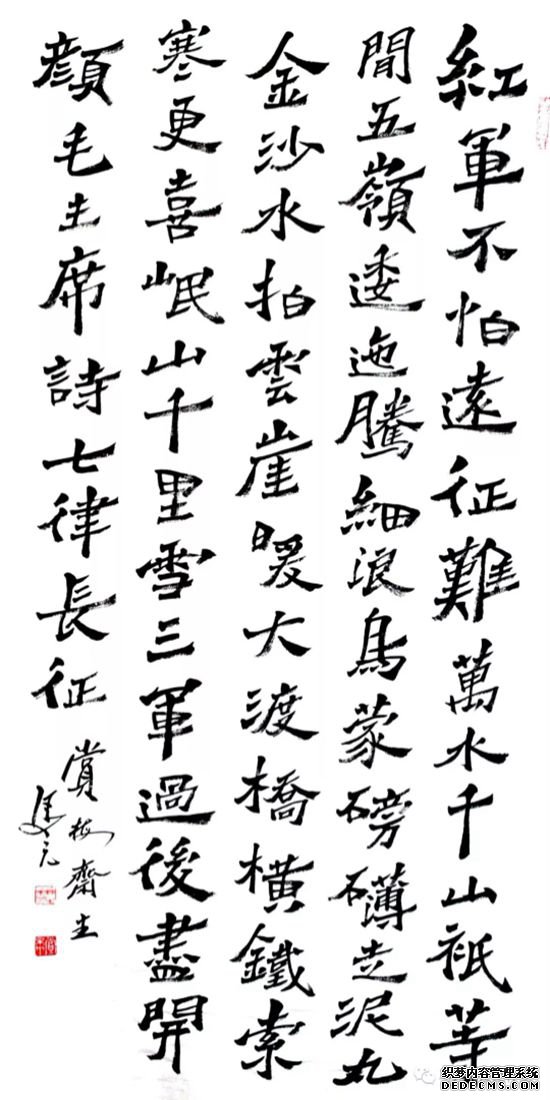 紅軍不怕遠征難萬水千山祇等
閒五嶺逶迤騰細浪烏蒙磅礴走泥丸
金沙水拍雲崖暖大渡橋橫鐵索
寒更喜岷山千里雪三軍過後盡開
顏毛主席詩七律長征
賞梅齋主
织梦内容管理系统
DEDECMS.COM